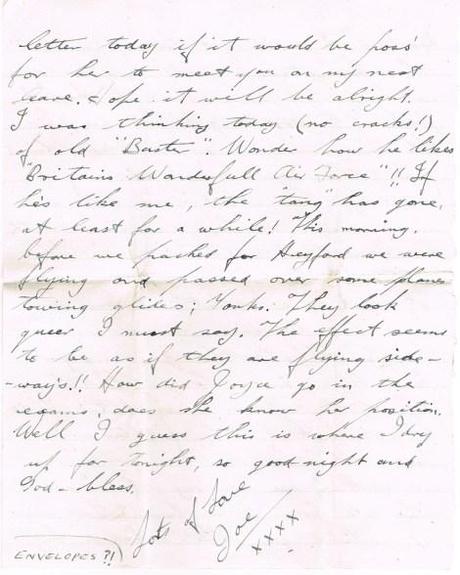 letter today if it would be poss'
for her to meet you on my next
leave. Hope it will be alright.
I was thinking today (no cracks!)
of old "Baster". Wonder how he likes
"Britains Wonderfull Air Force"!! If
he's like me, the "tang" has gone,
at least for a while! This morning,
before we packed for Heyford we were
flying and passed over some planes
towing glides; Yonks. They look
queer I must say. The effect seems
to be as if they are flying side-
-ways!! How did Joyce go in the
exams, does she know her position.
Well I guess this is where I dry
up for tonight, so good night and
God-bless.
Lots of Love
Joe
xxxx
ENVELOPES?!